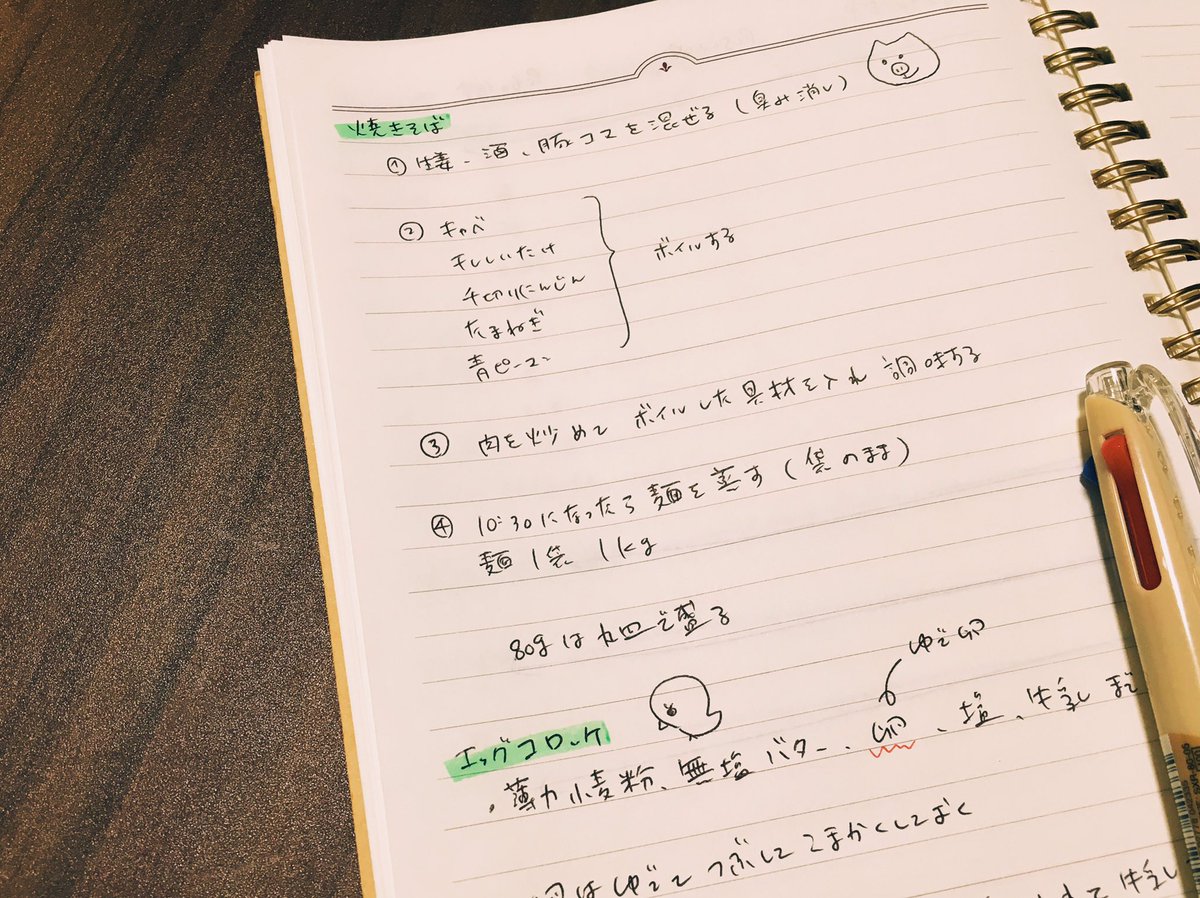 焼きそば
① 生姜、酒、豚コマを混ぜる（臭み消し）
② キャベ
干ししいたけ
千切りにんじん
たまねぎ
青ピーマン
ボイルする
③ 肉を炒めて ボイルした具材を入れ 調味する
④ 10:30になったら麺を蒸す（袋のまま）
麺1袋 1kg
80gは丸皿で盛る
ゆで卵
エッグコロッケ
・薄力小麦粉、無塩バター、卵、塩、牛乳 まで
卵はゆでて つぶして こまかくしておく
牛乳